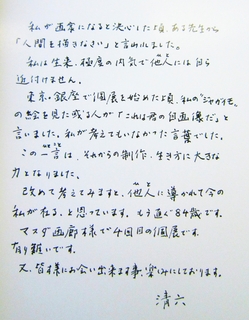 私が画家になると決心した頃、ある先生から
「人間を描きなさい」と言われました。
私は生来、極度の内気で他人には自ら
近付けません。
東京、銀座で個展を始めた頃、私の"ジャガイモ"
の絵を見た或る人が"これは君の自画像だ"と
言いました。私が考えてもいなかった言葉でした。
この一言は、それからの制作・生き方に大きな
力となりました。
改めて考えてみますと、他人に導かれて今の
私が在る。と思っています。もう直ぐ84歳です。
マスダ画廊様で4回目の個展です。
有り難いです。
又、皆様にお会い出来ます事、楽しみにしております。
清六